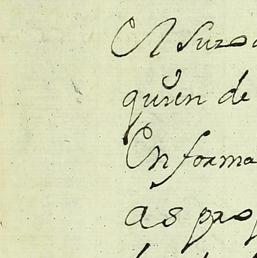 A Suzo
quien de
En forma
as prop